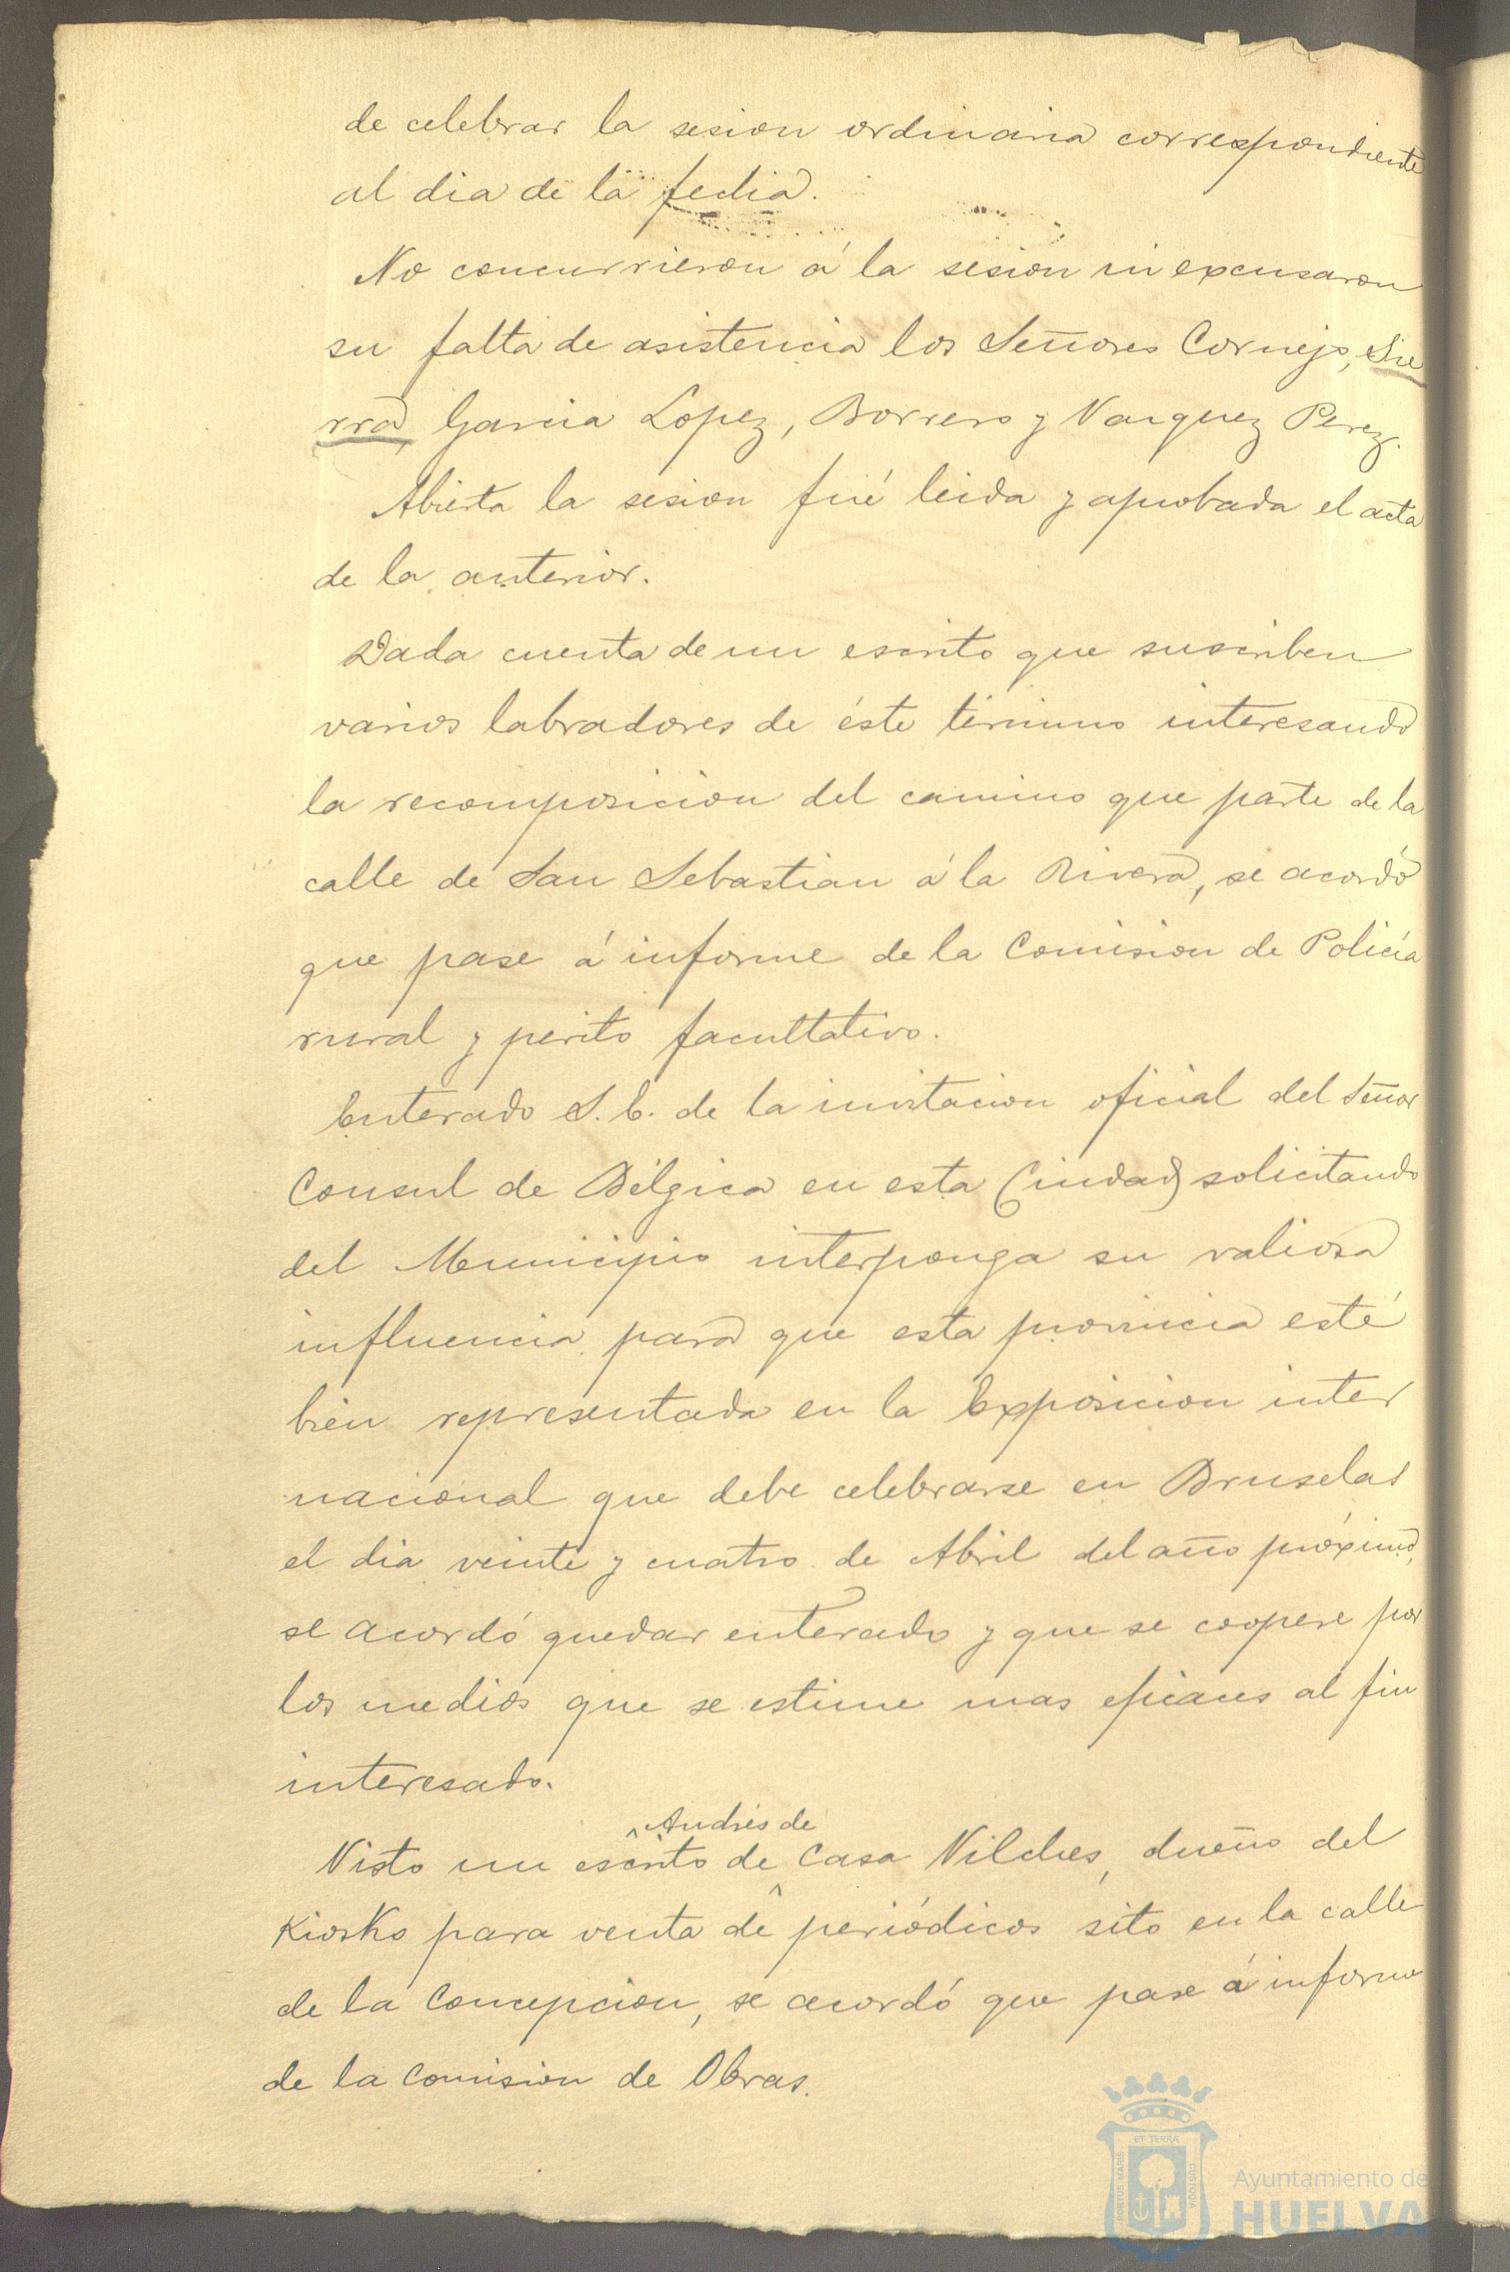 de celebrar la sesion ordinaria correspondiente
al dia de la fecha.
No concurrieron á la sesion ni excusaron
su falta de asistencia los Señores Cornejo, Sie
rra, Garcia Lopez, Borrero y Vazquez Perez.
Abierta la sesion fué leida y aprobada el acta
de la anterior.
Dada cuenta de un escrito que suscriben
varios labradores de éste término interesando
la recomposicion del camino que parte de la
calle de San Sebastian á la Rivera, se acordó
que pase á informe de la Comision de Policía
rural y perito facultativo.
Enterado S.E. de la invitacion oficial del Señor
Consul de Bélgica en esta Ciudad solicitando
del Municipio interponga su valiosa
influencia para que esta provincia esté
bien representada en la Exposicion inter
nacional que debe celebrarse en Bruselas
el dia veinte y cuatro de Abril del año próximo,
se acordó quedar enterado y que se coopere por
los medios que se estime mas eficaces al fin
interesado.
Andrés de
Visto un escrito de Casa Vilches, dueño del
Kiosko para venta de periódicos sito en la calle
de la Concepcion, se acordó que pase á informe
de la Comision de Obras.
PORTUS MARIS
ET TERRÆ
CUSTODIA
Ayuntamiento de
HUELVA